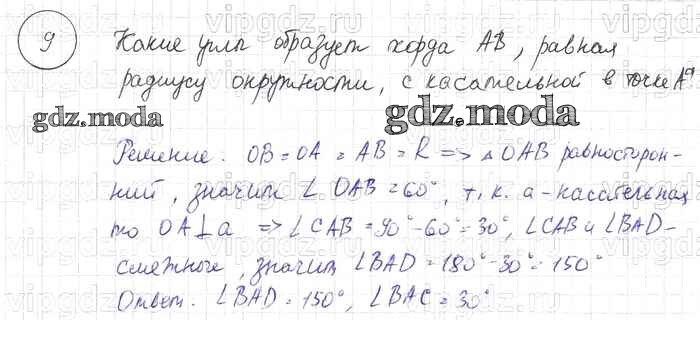 9
Какие углы образует хорда AB, равная
радиусу окружности, с касательной в точке A?
gdz.moda
gdz.moda
Решение: OB = OA = AB = R => △OAB равносторон-
ний, значит ∠OAB = 60°, т.к. a - касательная
то OA⊥a => ∠CAB = 90° - 60° = 30°, ∠CAB и ∠BAD -
смежные, значит ∠BAD = 180° - 30° = 150°
Ответ. ∠BAD = 150°, ∠BAC = 30°